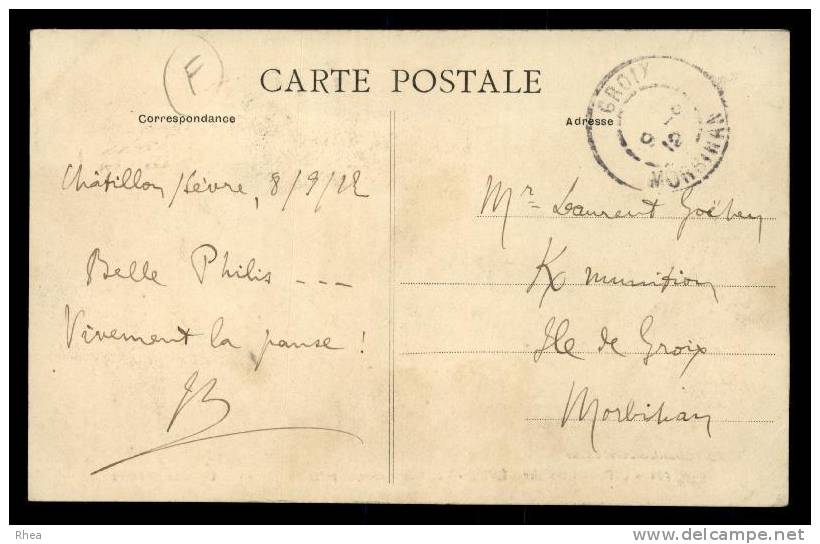 F
CARTE POSTALE
Correspondance
Adresse
GROIX
9
12
MORBIHAN
Châtillon s/Sèvre, 8/9/12
Belle Philis ---
Vivement la pause !
JB
Mr Laurent
K munition
Ile de Groix
Morbihan
Rhea
www.delcampe.net